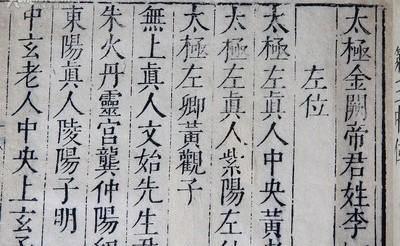 太極金闕帝君姓李
左位
太極左真人中央黃
太極左真人紫陽左仙
太極左卿黃觀子
無上真人文始先生尹
朱火丹靈宮龔仲陽
東陽真人陵陽子明
中玄老人中央上玄子